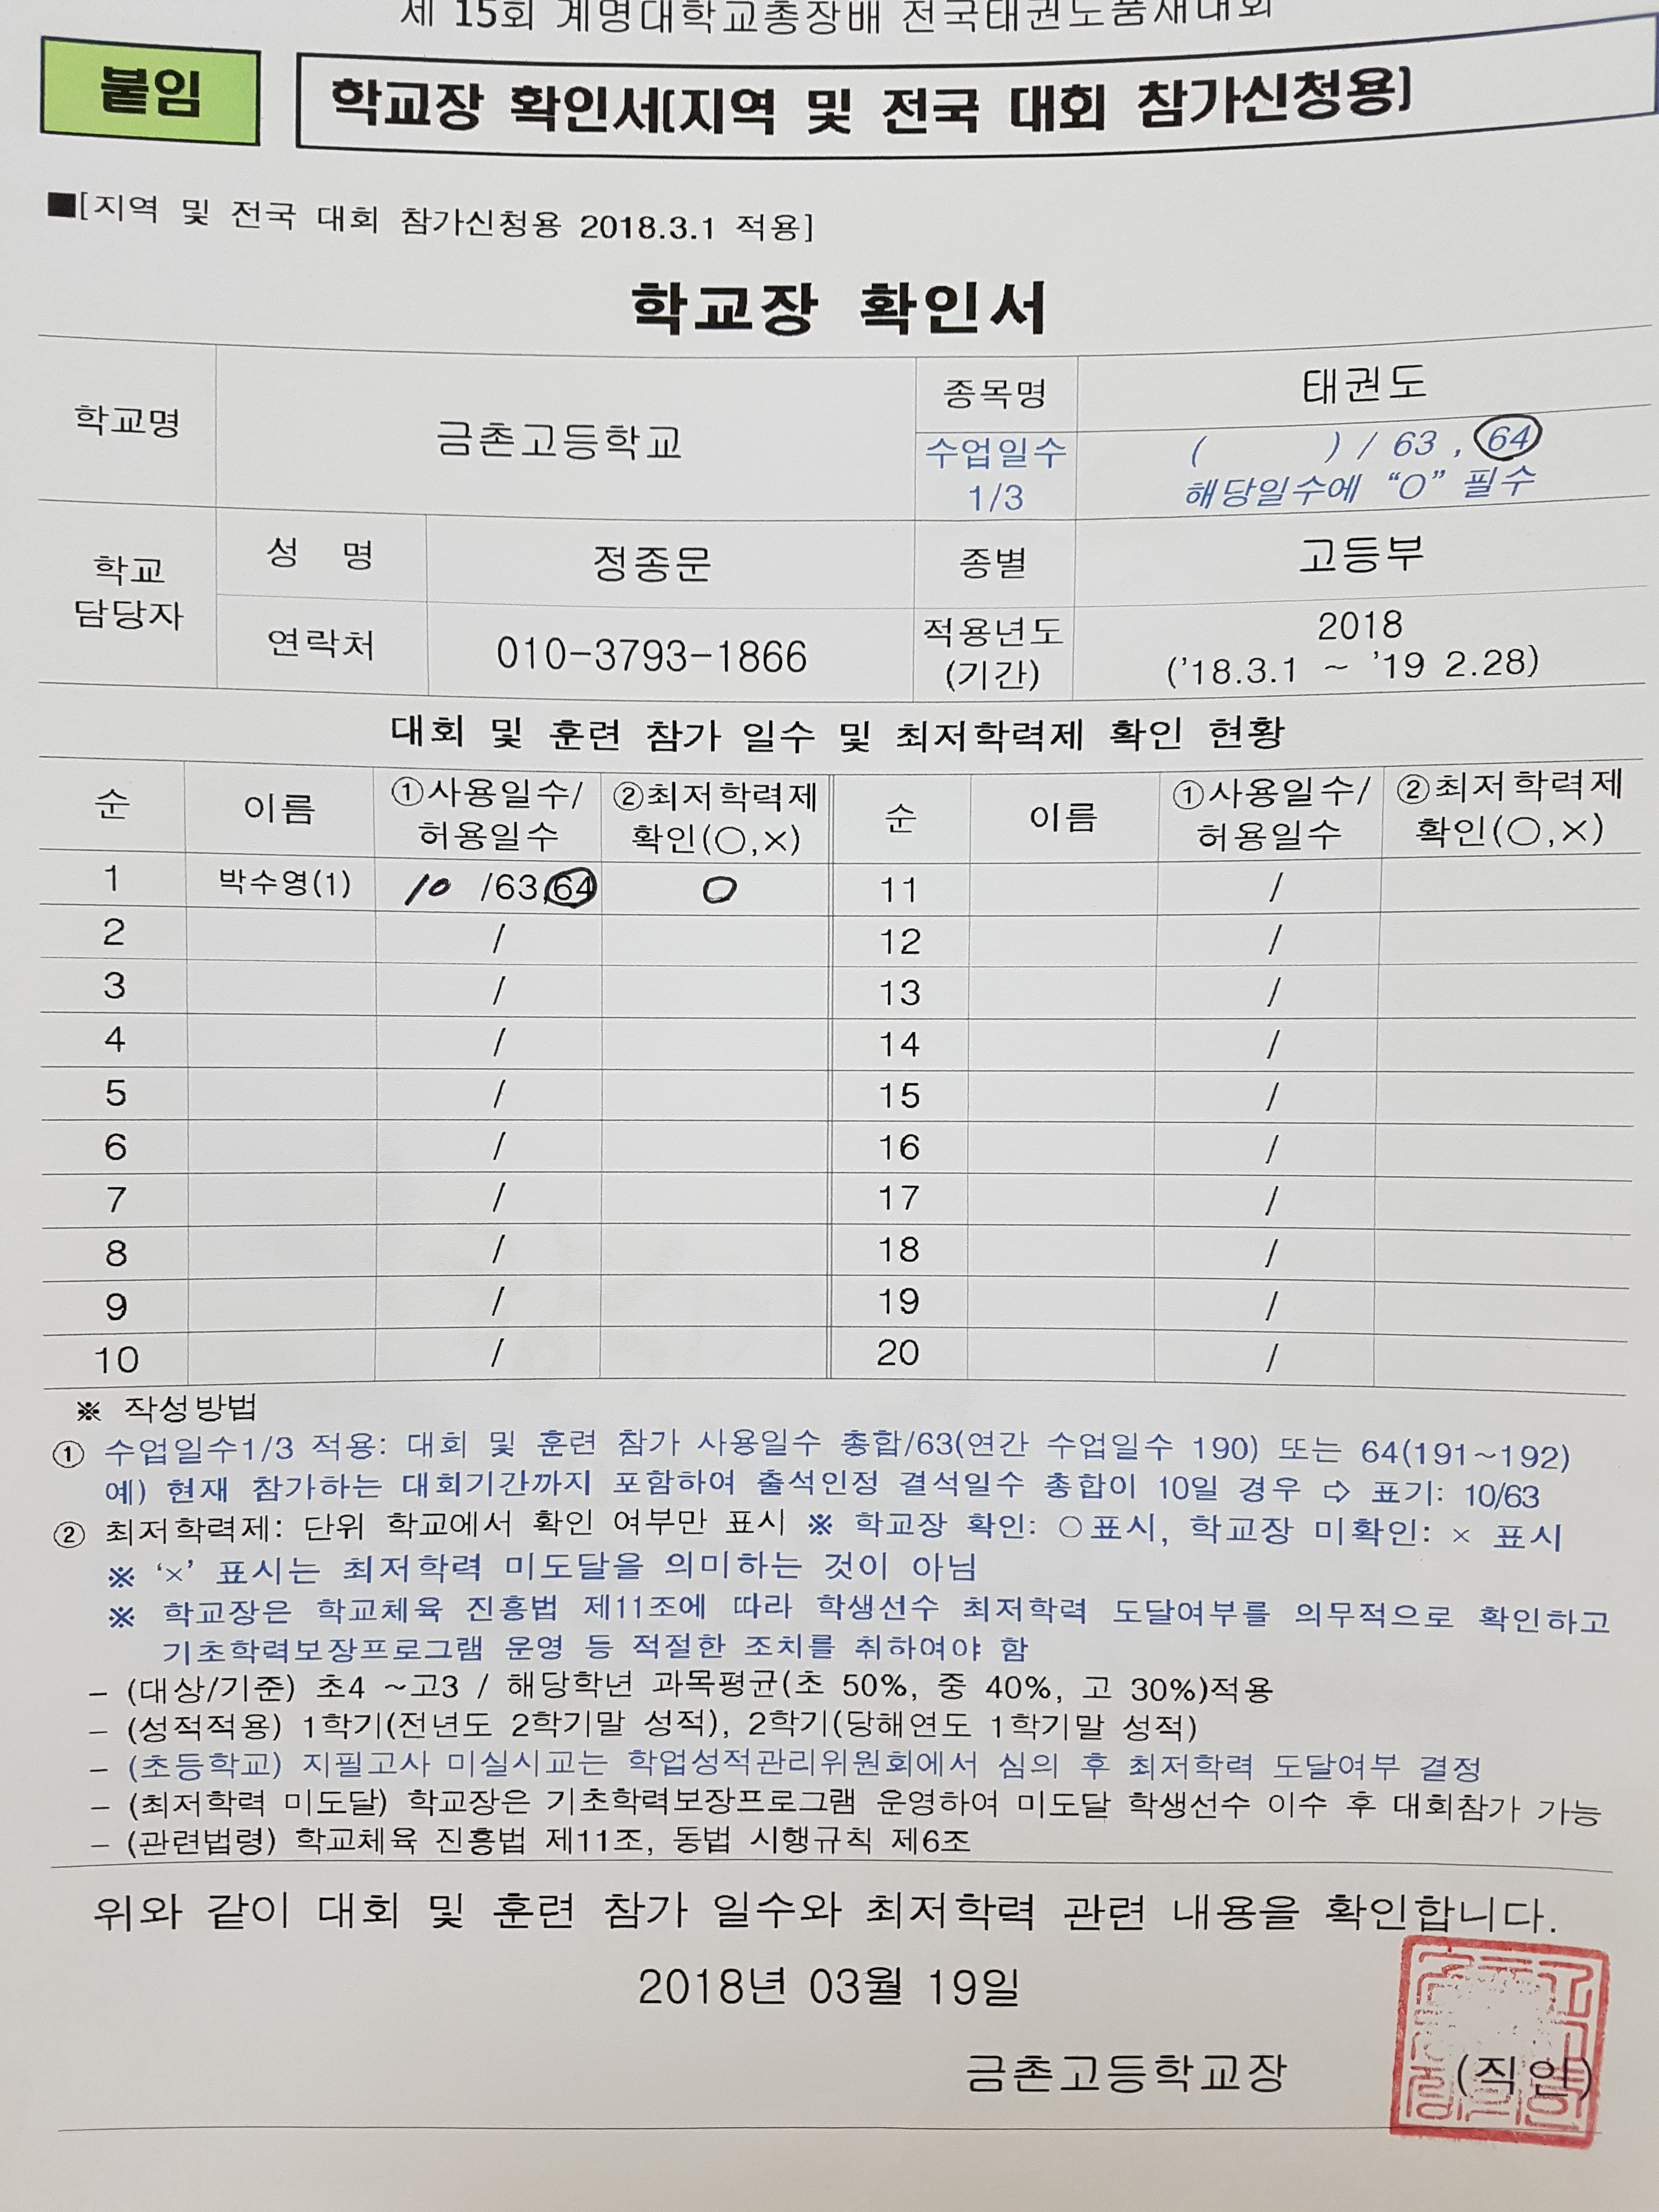 제 15회 계명대학교총장배 전국태권도품새대회
붙임
학교장 확인서[지역 및 전국 대회 참가신청용]
■[지역 및 전국 대회 참가신청용 2018.3.1 적용]
학교장 확인서
학교명
금촌고등학교
종목명
태권도
수업일수
1/3
( ) / 63 , 64
해당일수에 “O” 필수
학교
담당자
성 명
정종문
종별
고등부
연락처
010-3793-1866
적용년도
(기간)
2018
('18.3.1 ~ '19 2.28)
대회 및 훈련 참가 일수 및 최저학력제 확인 현황
순 이름 ①사용일수/ 허용일수 ②최저학력제 확인(○,×) 순 이름 ①사용일수/ 허용일수 ②최저학력제 확인(○,×)
1 박수영(1) 10 /63,64 O 11 /
2 / 12 /
3 / 13 /
4 / 14 /
5 / 15 /
6 / 16 /
7 / 17 /
8 / 18 /
9 / 19 /
10 / 20 /
※ 작성방법
① 수업일수1/3 적용: 대회 및 훈련 참가 사용일수 총합/63(연간 수업일수 190) 또는 64(191~192)
예) 현재 참가하는 대회기간까지 포함하여 출석인정 결석일수 총합이 10일 경우 ⇨ 표기: 10/63
② 최저학력제: 단위 학교에서 확인 여부만 표시 ※ 학교장 확인: ○표시, 학교장 미확인: × 표시
※ ‘×’ 표시는 최저학력 미도달을 의미하는 것이 아님
※ 학교장은 학교체육 진흥법 제11조에 따라 학생선수 최저학력 도달여부를 의무적으로 확인하고
기초학력보장프로그램 운영 등 적절한 조치를 취하여야 함
- (대상/기준) 초4 ~고3 / 해당학년 과목평균(초 50%, 중 40%, 고 30%)적용
- (성적적용) 1학기(전년도 2학기말 성적), 2학기(당해연도 1학기말 성적)
- (초등학교) 지필고사 미실시교는 학업성적관리위원회에서 심의 후 최저학력 도달여부 결정
- (최저학력 미도달) 학교장은 기초학력보장프로그램 운영하여 미도달 학생선수 이수 후 대회참가 가능
- (관련법령) 학교체육 진흥법 제11조, 동법 시행규칙 제6조
위와 같이 대회 및 훈련 참가 일수와 최저학력 관련 내용을 확인합니다.
2018년 03월 19일
금촌고등학교장 (직인)